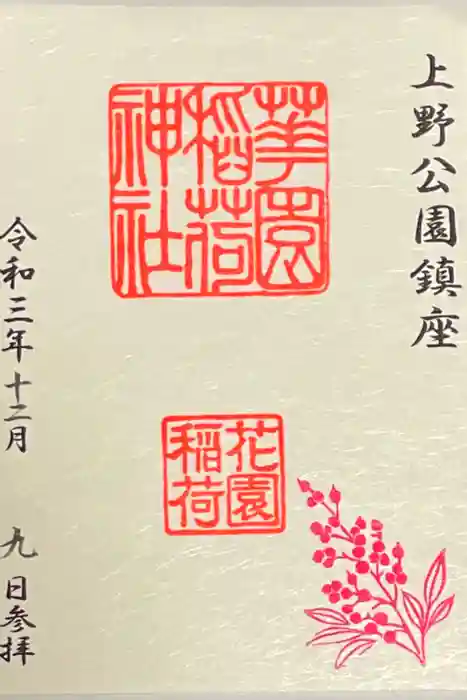 上野公園鎮座
華園
稲荷
神社
花園
稲荷
令和三年十二月 九日参拝